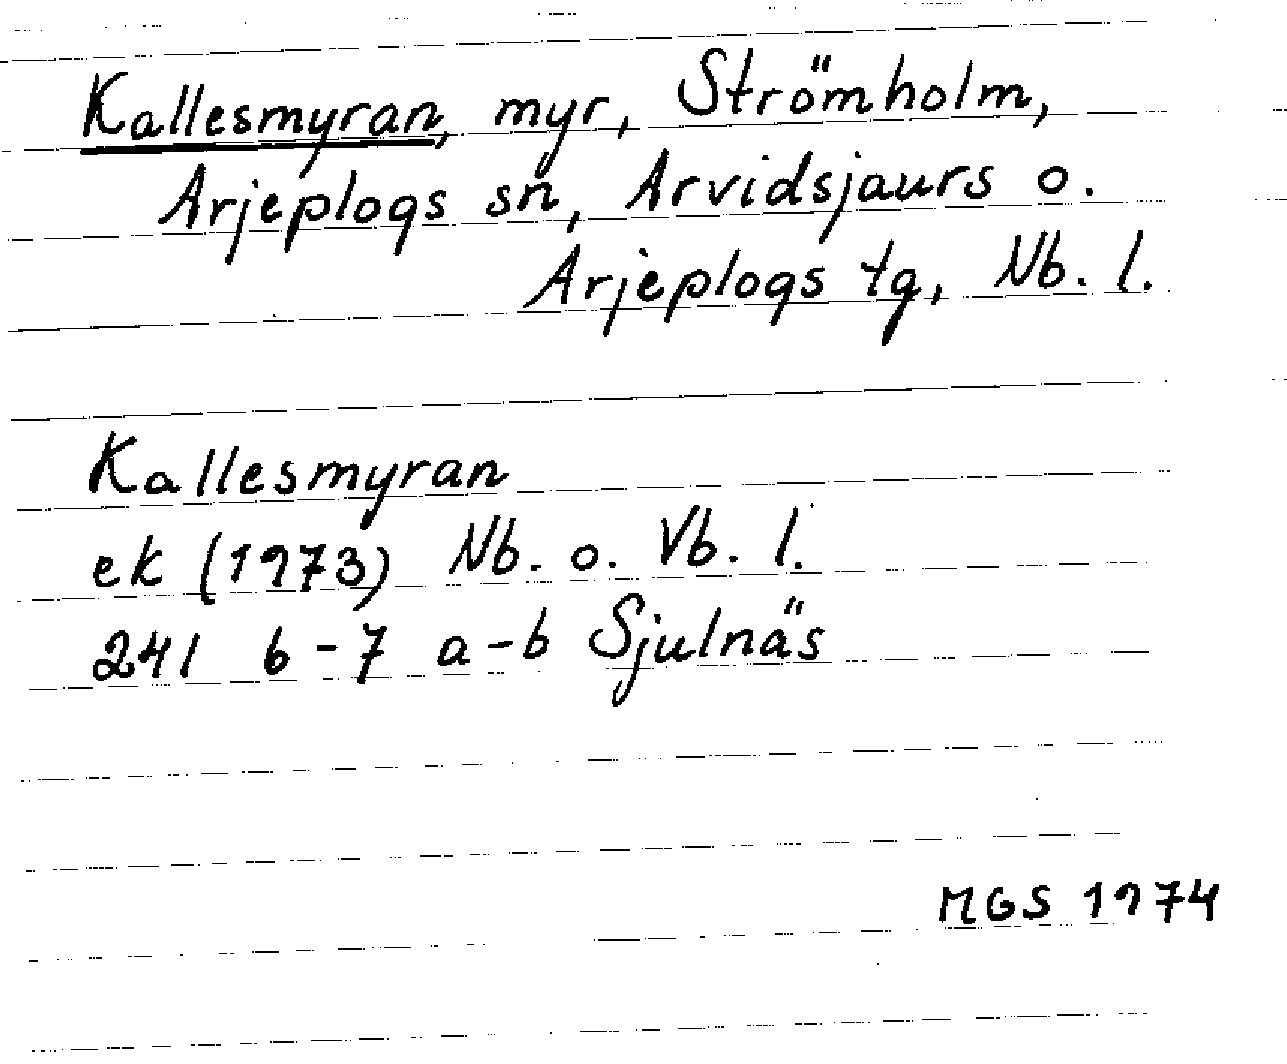 Kallesmyran, myr, Strömholm,
Arjeplogs sn, Arvidsjaurs o.
Arjeplogs tg, Nb. l.
Kallesmyran
ek (1973) Nb. o. Vb. l.
241 6-7 a-b Sjulnäs
MGS 1974